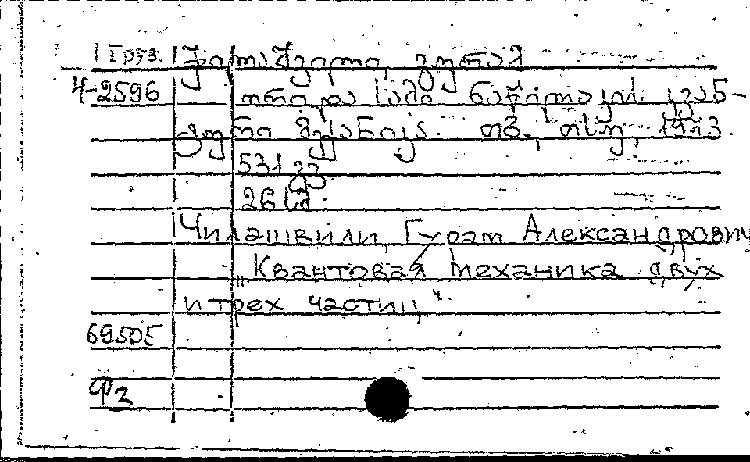 Груз. ჭილაშვილი, გურამ
Ч-2596 ორი და სამი ნაწილაკის კვან-
ტური მექანიკა. თბ., თსუ, 1973.
531
26 с.
Чилашвили, Гурам Александрович
„Квантовая механика двух
и трех частиц“.
69505
Ф2